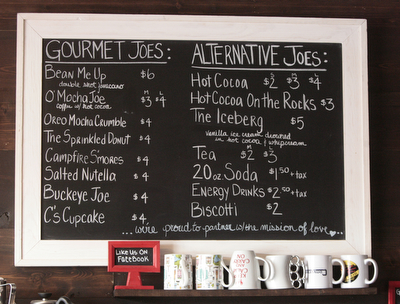 GOURMET JOES:
Bean Me Up $6
double shot
O'Mocha Joe M $3 L $4
coffee w/ hot cocoa
Oreo Mocha Crumble $4
The Sprinkled Donut $4
Campfire S'mores $4
Salted Nutella $4
Buckeye Joe $4
C's Cupcake $4
ALTERNATIVE JOES:
Hot Cocoa S $2 M $3 L $4
Hot Cocoa On the Rocks $3
The Iceberg $5
vanilla ice cream drowned
in hot cocoa & whipcream
Tea M $2 L $3
20 oz Soda $1.50 + tax
Energy Drinks $2.50 + tax
Biscotti $2
...we're proud to partner w/ the mission of love...
LIKE US ON
FACEBOOK